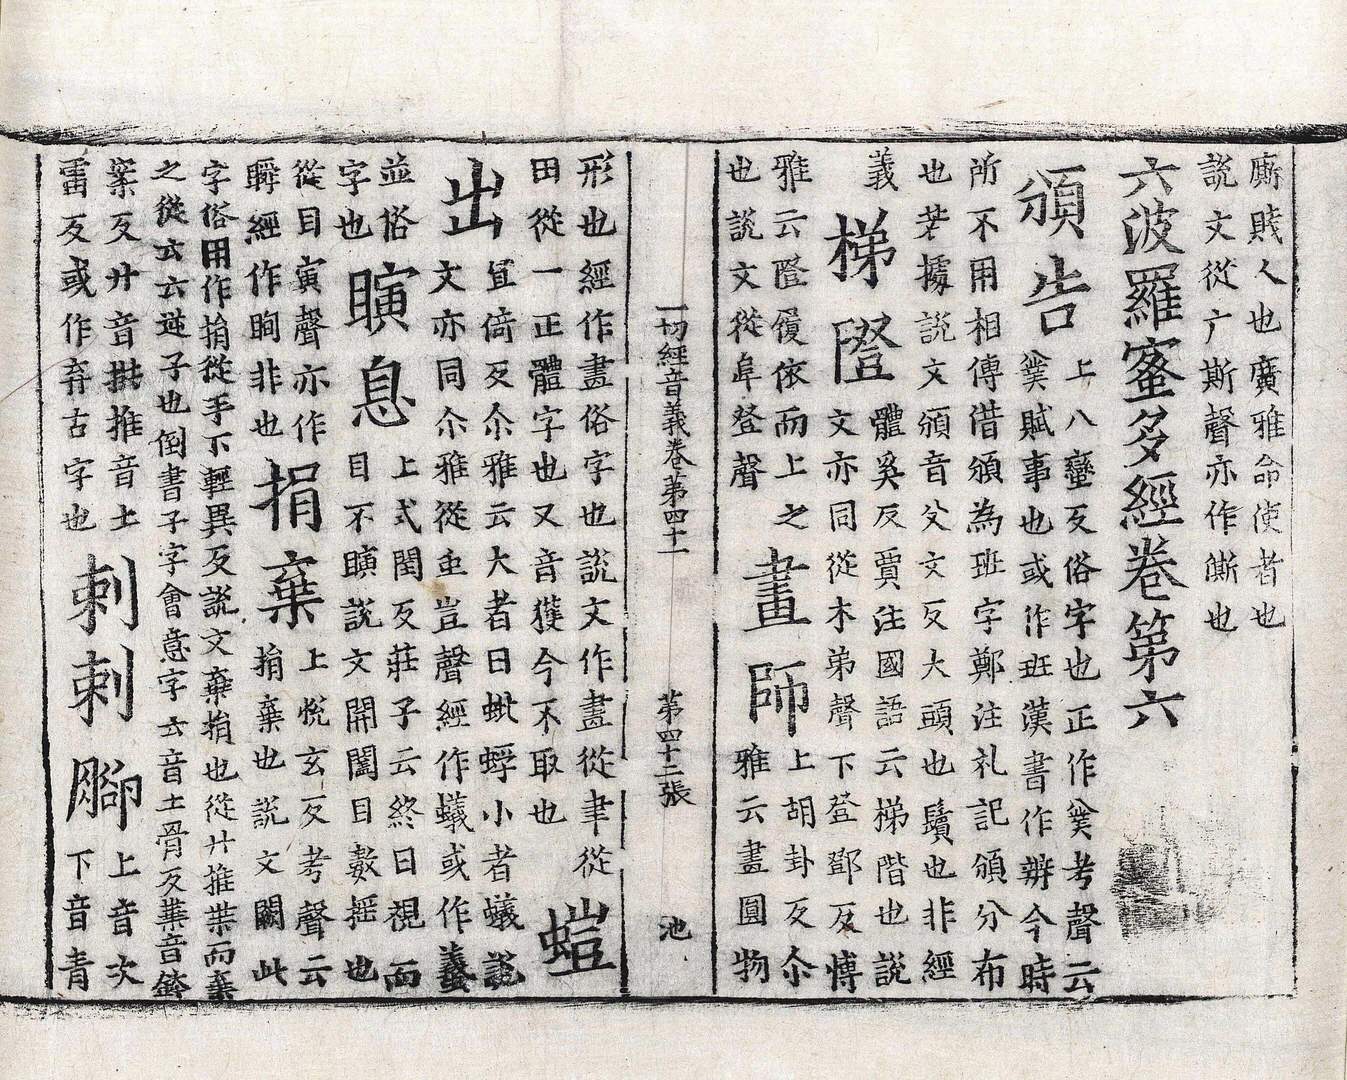 廝賤人也廣雅命使者也
說文從广斯聲亦作㒋也
六波羅蜜多經卷第六
頒告上八蠻反俗字也正作𢍱考聲云
𢍱賦事也或作班漢書作辨今時
所不用相傳借頒為班字鄭注礼記頒分布
也若據說文頒音父文反大頭也鬢也非經
義 梯隥體奚反賈注國語云梯階也說
文亦同從木弟聲下登鄧反博
雅云隥履依而上之
也說文從阜登聲
畫師上胡卦反尒
雅云畫圓物
一切經音義卷第四十一 第四十二張 池
形也經作畫俗字也說文作畫從聿從
田從一正體字也又音獲今不取也 螘
出宜倚反尒雅云大者曰蚍蜉小者蟻說
文亦同尒雅從虫豈聲經作蟻或作蛬
並俗
字也 瞚息上式閏反莊子云終日視而
目不瞚說文開闔目數揺也
從目寅聲亦作
瞬經作眴非也 捐棄上悅玄反考聲云
捐棄也說文闕此
字俗用作捐從手下輕異反說文棄捐也從廾推𠦒而棄
之從𠫓𠫓逆子也倒書子字會意字𠫓音土骨反𠦒音鈴
業反廾音拱推音土
雷反或作弃古字也 刺刺腳上音次
下音青